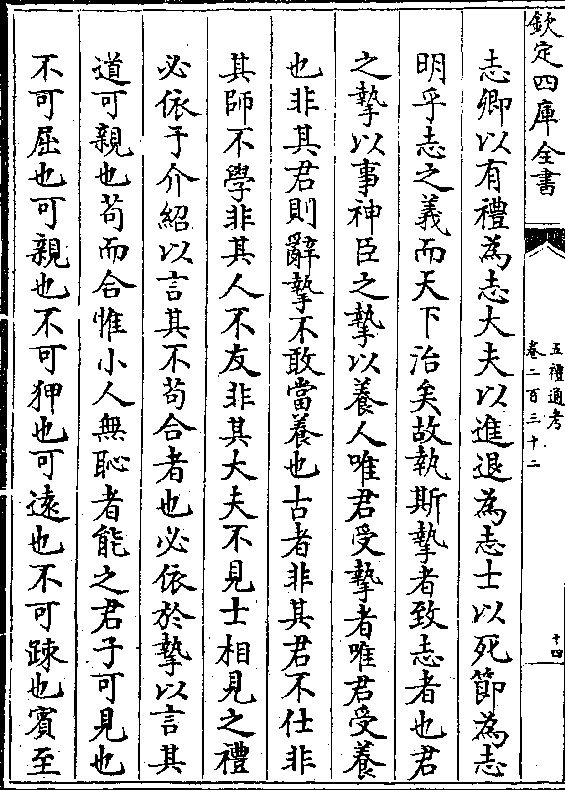 欽定四庫全書
五禮通考
卷二百三十二
十四
志卿以有禮為志大夫以進退為志士以死節為志
明乎志之義而天下治矣故執斯摯者致志者也君
之摯以事神臣之摯以養人唯君受摯者唯君受養
也非其君則辭摯不敢當養也古者非其君不仕非
其師不學非其人不友非其大夫不見士相見之禮
必依于介紹以言其不苟合者也必依於摯以言其
道可親也苟而合惟小人無恥者能之君子可見也
不可屈也可親也不可狎也可遠也不可踈也賓至